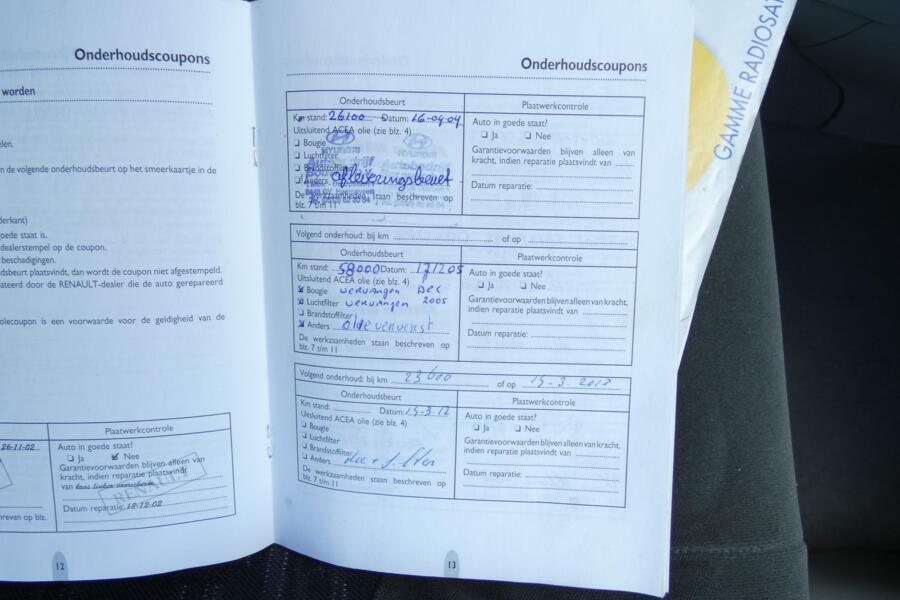 Onderhoudscoupons
worden
elen.
n de volgende onderhoudsbeurt op het smeerkaartje in de
derkant)
oede staat is.
dealerstempel op de coupon.
beschadigingen.
dsbeurt plaatsvindt, dan wordt de coupon niet afgestempeld.
ateerd door de RENAULT-dealer die de auto gerepareerd
olecoupon is een voorwaarde voor de geldigheid van de
Plaatwerkcontrole
26-11-02
Auto in goede staat?
Ja Nee
Garantievoorwaarden blijven alleen van
kracht, indien reparatie plaatsvindt
van
RENAULT
Datum reparatie: 18-12-02
hreven op blz.
12
Onderhoudscoupons
Onderhoudsbeurt Plaatwerkcontrole
Km stand: 26100 Datum: 16-04-04
Uitsluitend ACEA olie (zie blz. 4)
Bougie
Luchtfilter
Brandstoffilter
Anders afleveringsbeurt
HYUNDAI
De werkzaamheden staan beschreven op
blz. 7 t/m 11
Auto in goede staat?
Ja Nee
Garantievoorwaarden blijven alleen van
kracht, indien reparatie plaatsvindt van
Datum reparatie:
Volgend onderhoud: bij km of op
Onderhoudsbeurt Plaatwerkcontrole
Km stand: 58000 Datum: 171205
Uitsluitend ACEA olie (zie blz. 4)
Bougie vervangen Dec
Luchtfilter vervangen 2005
Brandstoffilter
Anders olie ververst
De werkzaamheden staan beschreven op
blz. 7 t/m 11
Auto in goede staat?
Ja Nee
Garantievoorwaarden blijven alleen van kracht,
indien reparatie plaatsvindt van
Datum reparatie:
Volgend onderhoud: bij km 23600 of op 15-3-2012
Onderhoudsbeurt Plaatwerkcontrole
Km stand: Datum: 15-3-12
Uitsluitend ACEA olie (zie blz. 4)
Bougie
Luchtfilter
Brandstoffilter
Anders
De werkzaamheden staan beschreven op
blz. 7 t/m 11
Auto in goede staat?
Ja Nee
Garantievoorwaarden blijven alleen van kracht,
indien reparatie plaatsvindt van
Datum reparatie:
13
GAMME RADIOSAT